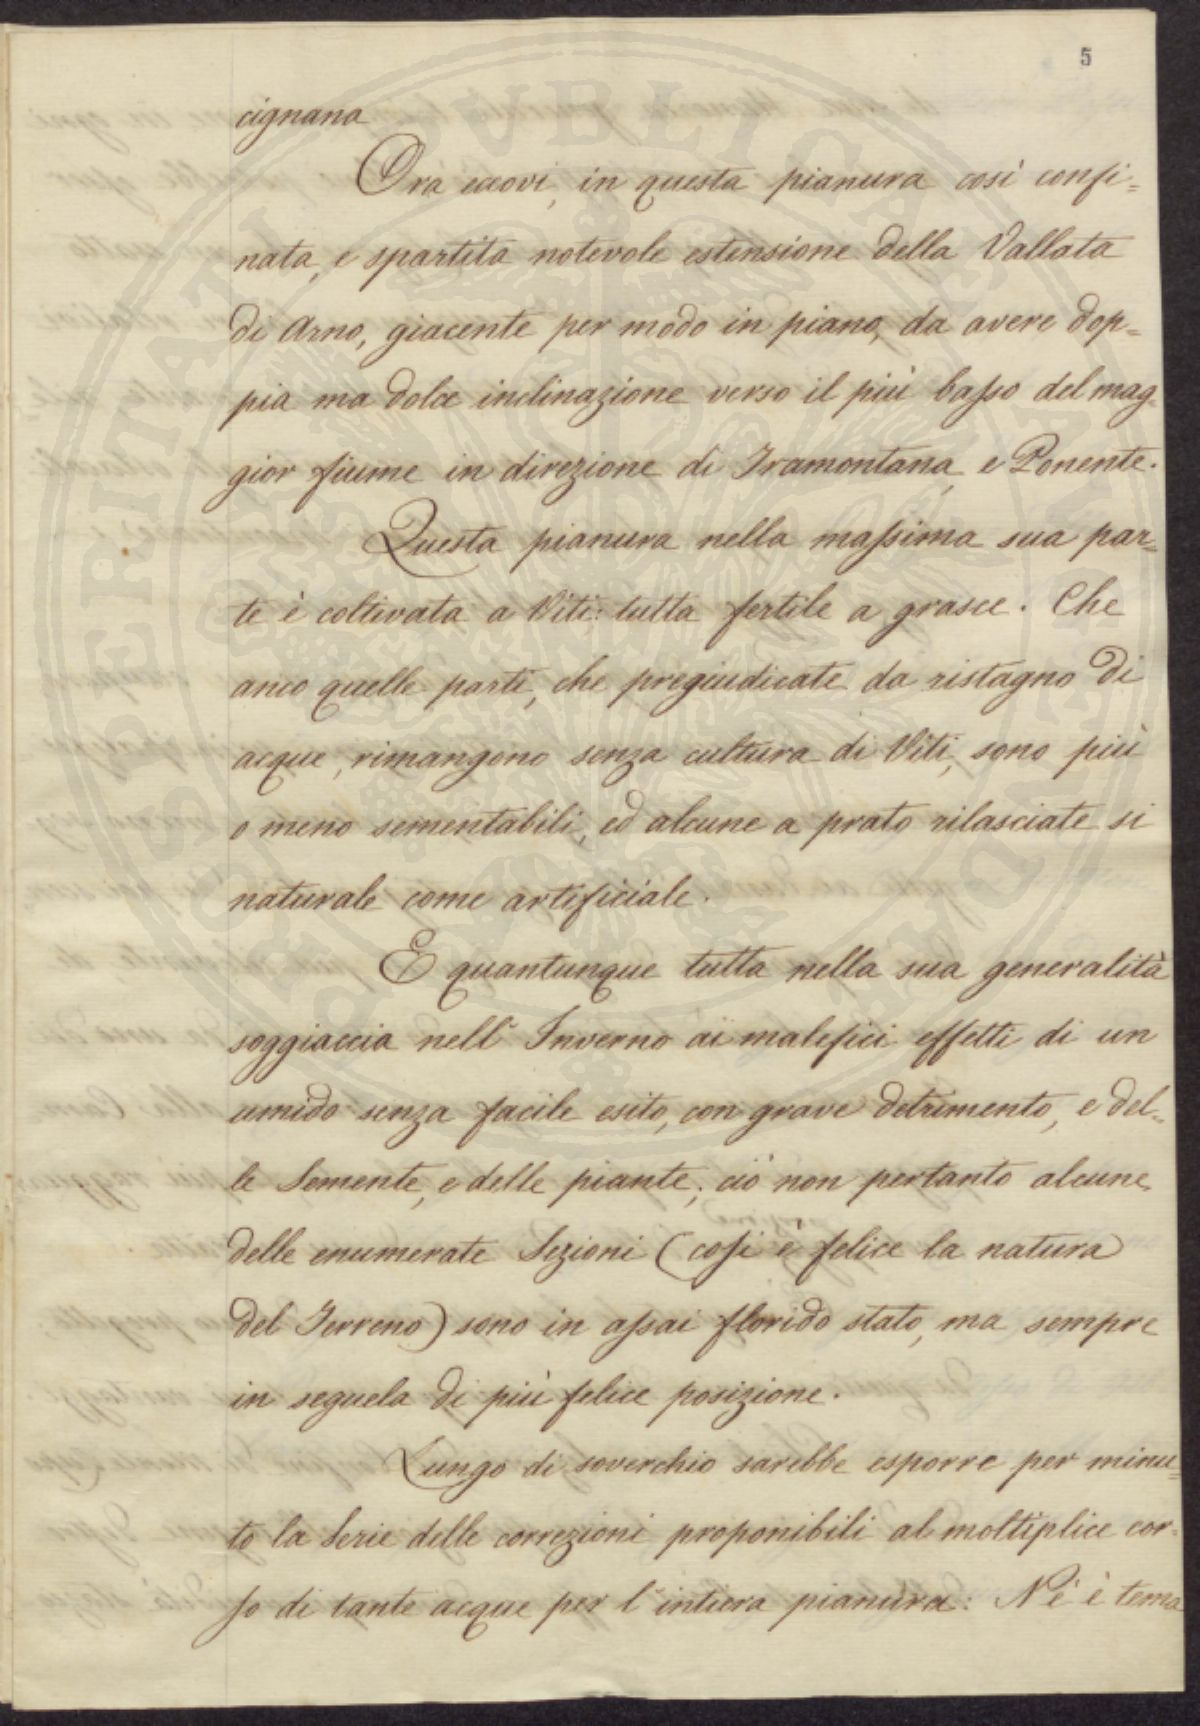 5
cignana
Ora eccovi, in questa pianura così confi=
nata, e spartita notevole estensione della Vallata
di Arno, giacente per modo in piano, da avere dop=
pia ma dolce inclinazione verso il più basso del mag=
gior fiume in direzione di Tramontana, e Ponente.
Questa pianura nella massima sua par=
te è coltivata a Viti: tutta fertile a grasce. Che
anco quelle parti, che pregiudicate da ristagno di
acque, rimangono senza cultura di Viti, sono più
o meno sementabili, ed alcune a prato rilasciate si
naturale come artificiale.
E quantunque tutta nella sua generalità
soggiaccia nell' Inverno ai malefici effetti di un
umido senza facile esito, con grave detrimento, e del=
le Semente, e delle piante; ciò non pertanto alcune
delle enumerate Sezioni (cosi è felice la natura
del Terreno) sono in assai florido stato, ma sempre
in seguela di più felice posizione.
Lungo di soverchio sarebbe esporre per minu=
to la Serie delle correzioni proponibili al moltiplice cor=
so di tante acque per l'intiera pianura: Nè è tema
PROSPERITATI PUBLICAE